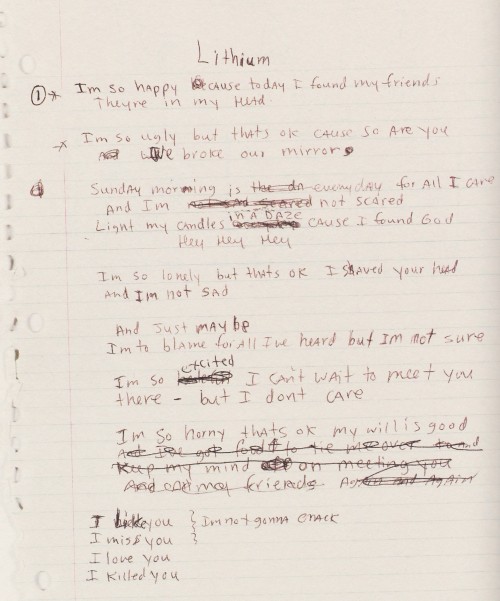 Lithium
① * Im so happy because today I found my friends
Theyre in my Head.
* Im so ugly but thats ok cause so are you
We broke our mirrors
Sunday morning is the da everyday for all I care
And I'm not scared
in A DAZE
Light my candles cause I found God
Hey Hey Hey
Im so lonely but thats ok I shaved your head
And Im not sad
And Just maybe
Im to blame for all Ive heard but Im not sure
excited
Im so I cant wait to meet you
there - but I dont care
Im so horny thats ok my will is good
to tie me over and
Keep my mind on meeting you
And my friends Again and Again
I like you } Im not gonna crack
I miss you }
I love you
I killed you